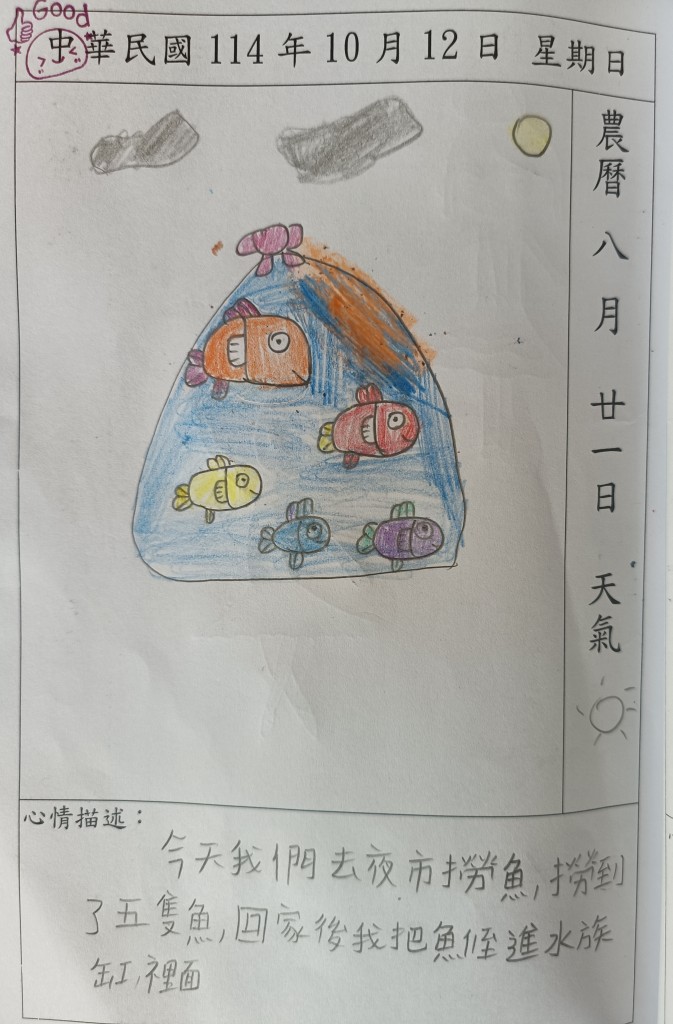 Good
中華民國 114 年 10 月 12 日 星期日
農曆 八月 廿一日 天氣
心情描述：
今天我們去夜市撈魚,撈到
了五隻魚,回家後我把魚倒進水族
缸,裡面